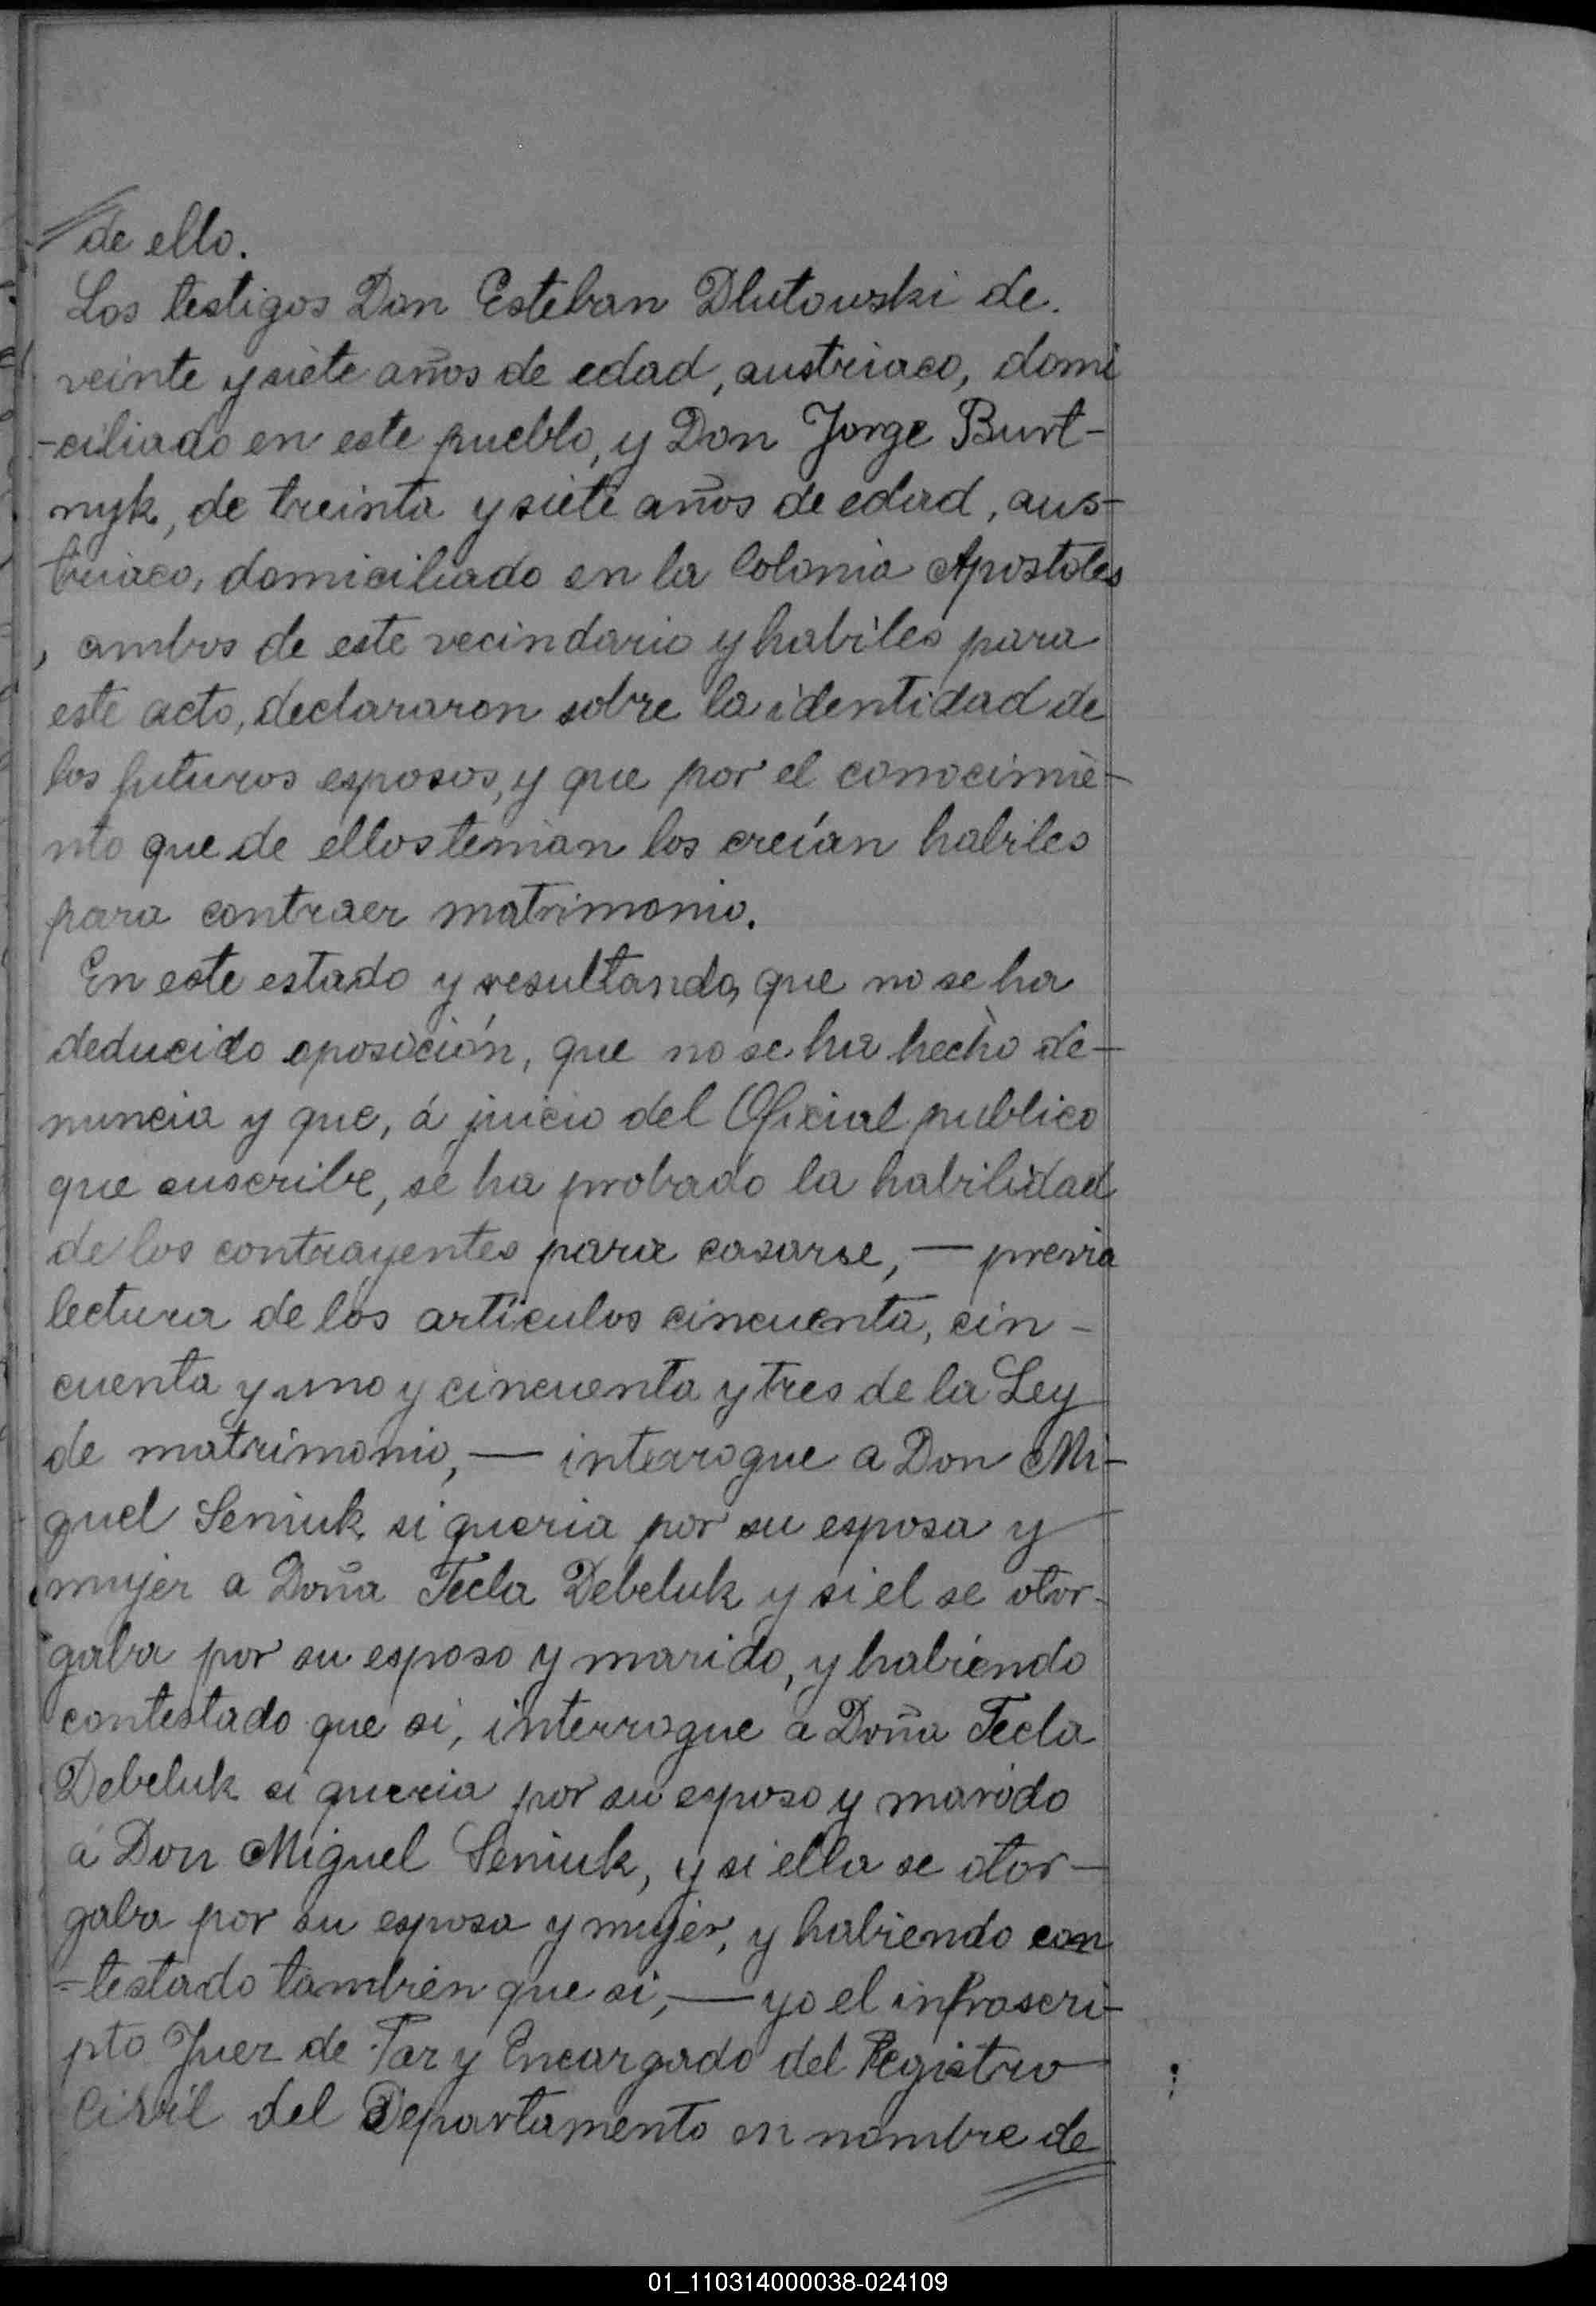 de ello.
Los testigos Don Esteban Dlutowski de
veinte y siete años de edad, austriaco, domi
-ciliado en este pueblo, y Don Jorge Burt-
nyk, de treinta y siete años de edad, aus-
triaco, domiciliado en la Colonia Apostoles
, ambos de este vecindario y habiles para
este acto, declararon sobre la identidad de
los futuros esposos, y que por el conocimie-
nto que de ellos tenian los creían habiles
para contraer matrimonio.
En este estado y resultando que no se ha
deducido oposición, que no se ha hecho de-
nuncia y que, á juicio del Oficial publico
que suscribe, se ha probado la habilidad
de los contrayentes para casarse, — previa
lectura de los artículos cincuenta, cin-
cuenta y uno y cincuenta y tres de la Ley
de matrimonio, — interrogue a Don Mi-
guel Seniuk si queria por su esposa y
mujer a Doña Tecla Debeluk y si el se otor-
gaba por su esposo y marido, y habiendo
contestado que si, interrogue a Doña Tecla
Debeluk si queria por su esposo y marido
á Don Miguel Seniuk, y si ella se otor-
gaba por su esposa y mujer, y habiendo con
-testado tambien que si, — yo el infrascri-
pto Juez de Paz y Encargado del Registro
Civil del Departamento en nombre de
01_110314000038-024109